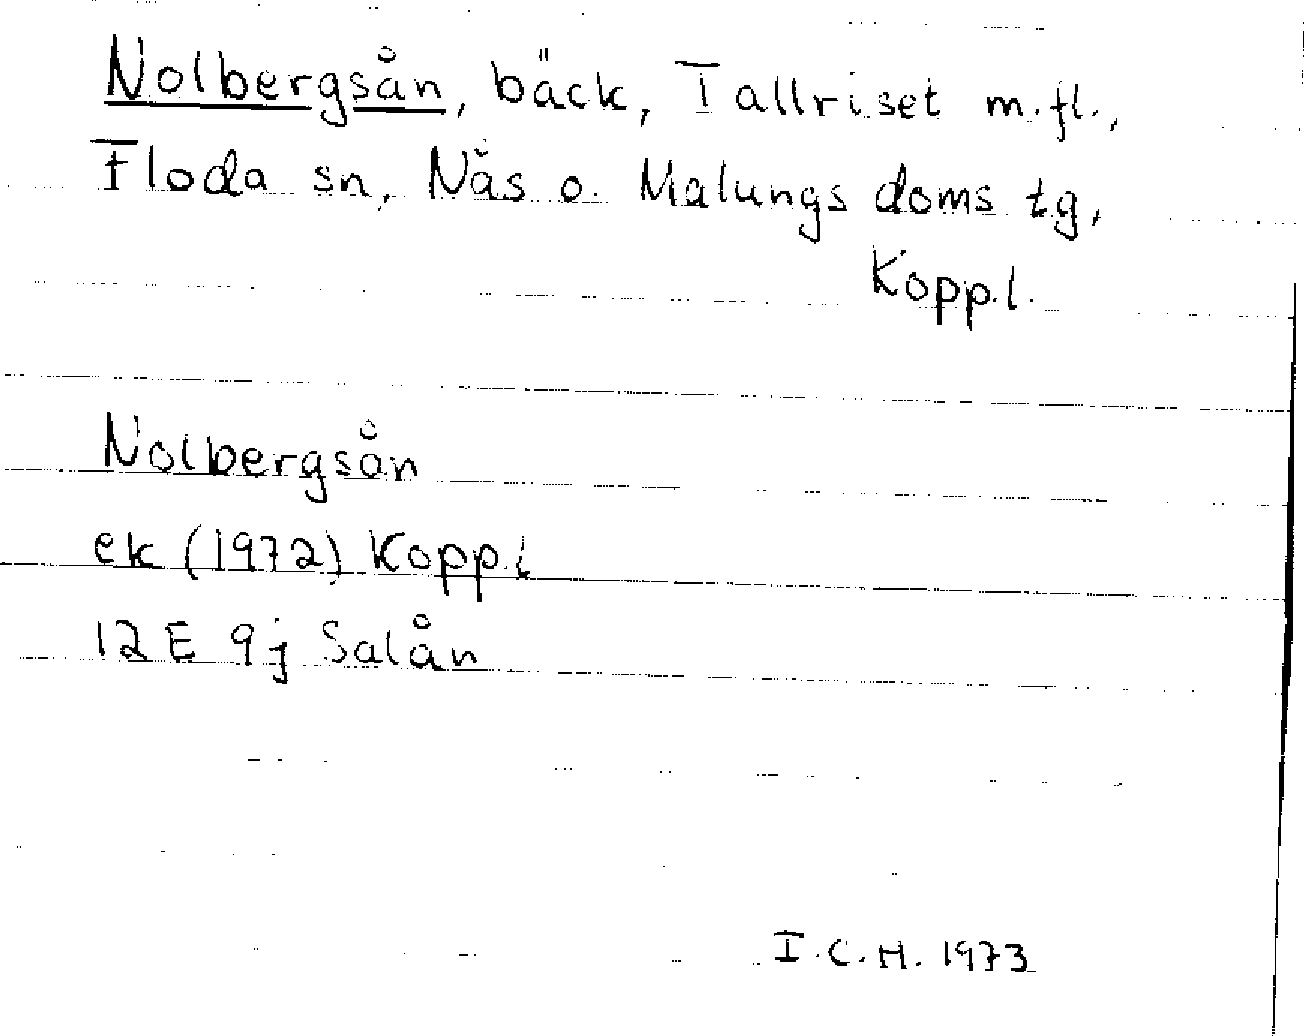 Nolbergsån, bäck, Tallriset m.fl.,
Floda sn, Nås o. Malungs doms tg,
Kopp.l.
Nolbergsån
ek (1972) Kopp.l
12E 9j Salån
I.C.H. 1973